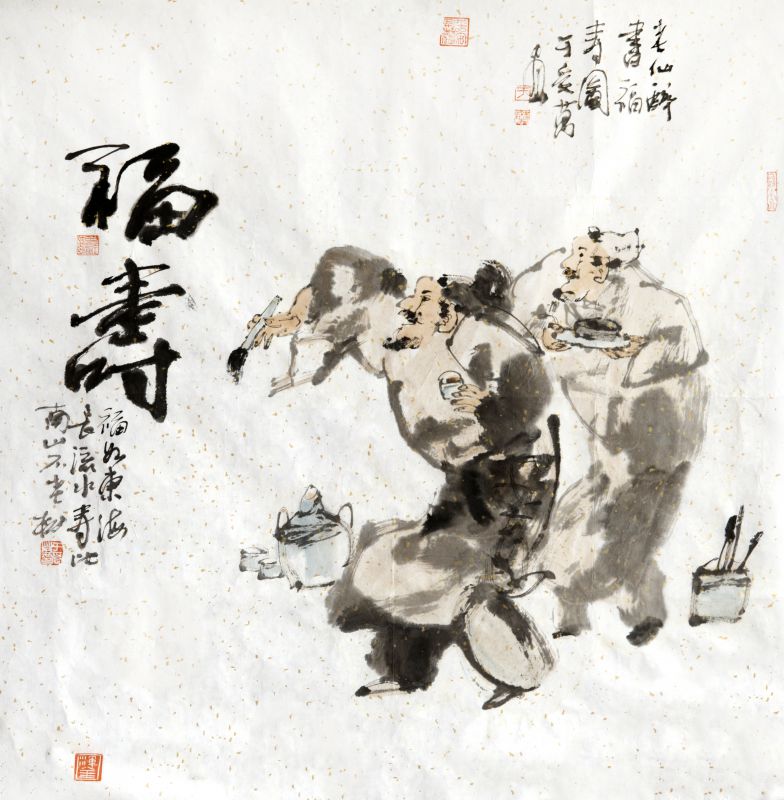 老仙醉
書福
壽圖
丁亥萬
福壽
福如東海
長流水壽比
南山不老松